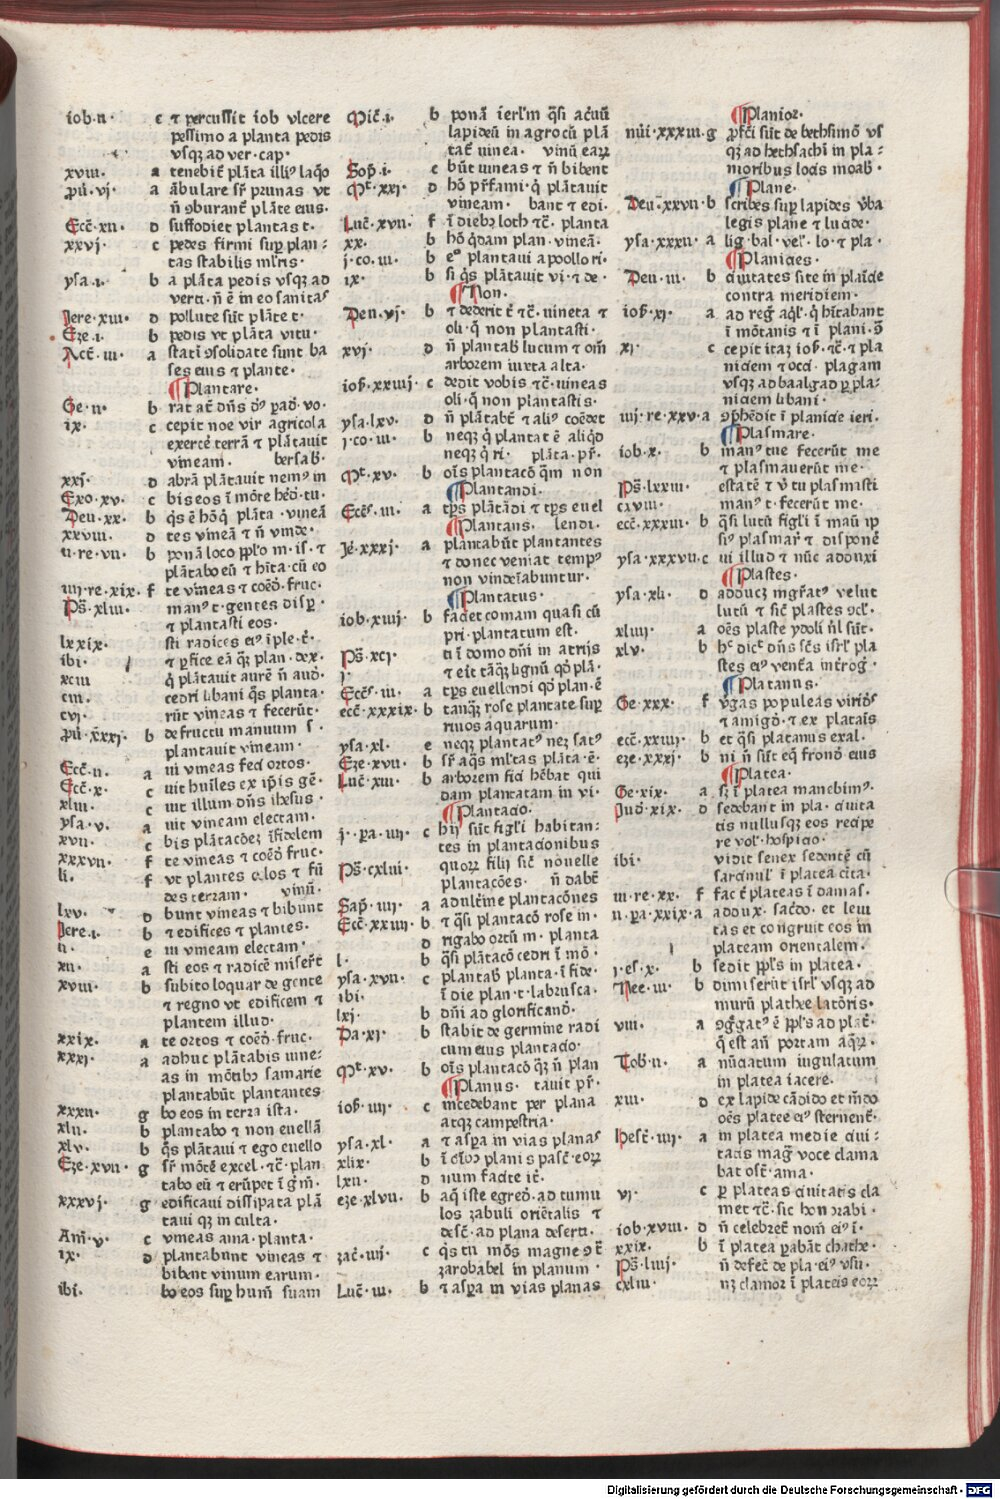 iob·ii· c ⁊ percussit iob vlcere
pessimo a planta pedis
vsqꝫ ad ver·cap·
xviii· a tenebit̄ plāta illiꝰ laq̄o
ꝓu̅·vj· a ābulare sr̄ prunas vt
n̄ ↄburant̄ plāte eius·
Ecc̄·xii· d suffodiet plantas t·
xxvj· c pedes firmi suꝑ plan:
tas stabilis ml̄ris·
ysa·i· b a plāta pedis vsqꝫ ad
verti·n̄ ē in eo sanitas
Jere·xiii· d pollute sūt plāte t·
Eze·i· b pedis vt plāta vitu·
Act̄·iii· a stati ↄsolidate sunt ba
ses eius ⁊ plante·
¶Plantare·
Ge·ii· b rat at̄ dn̄s dꝰ ꝑad̄·vo·
ix· c cepit noe vir agricola
exerce̅ terrā ⁊ plātauit
vineam· bersab̄·
xxj· d abrā plātauit nemꝰ in
Exo·xv· c bis eos ī mōte hēd̄·tu·
Deu·xx· b qͥs ē hō qͥ plāta·vineā
xxviii· d tes vineā ⁊ n̄ vinde·
ii·re·vii· b ponā loco ppl̄o m·is·⁊
plātabo eū ⁊ hīta·cū eo
iiij·re·xix· f te vineas ⁊ coēd̄·fruc·
Ps̄·xliii· manꝰ t·gentes disꝑ·
⁊ plantasti eos·
lxxix· sti radices eiꝰ īple·t̄·
ibi· ⁊ ꝑfice eā qͣꝫ plan·dex·
xciii qͥ plātauit aurē n̄ aud̄·
ciii· cedri libani qͣs planta·
cvj· rūt vineas ⁊ fecerūt·
ꝓu̅·xxxj· b de fructu manuum s·
plantauit vineam·
Ecc̄·ii· a ui vineas feci ortos·
Ecc̄·x· c uit huīles ex ip̄is gē·
xliii· c uit illum dn̄s ihesus·
ysa·v· a uit vineam electam·
xvii· c bis plātacōeꝫ īfidelem
xxxvii· f te vineas ⁊ coēd̄ fruc·
li· f vt plantes celos ⁊ fū
des terram· vinū·
lxv· d bunt vineas ⁊ bibunt
Jere·i· b ⁊ edifices ⁊ plantes·
ii· e iii vineam electam·
xii· a sti eos ⁊ radicē miser̄t
xviii· b subito loquar de gente
⁊ regno vt edificem ⁊
plantem illud·
xxix· a te ortos ⁊ coēd̄·fruc·
xxxj· a adhuc plātabis uine:
as in mōtibꝰ samarie
plantabūt plantantes
xxxii· g bo eos in terra ista·
xlii· b plantabo ⁊ non euellā
xlv· b qͣs plātaui ⁊ ego euello
Eze·xvii· g sr̄ mōtē excel·⁊c̄·plan
tabo eū ⁊ erūpet ī gm̄·
xxxvj· g edificaui dissipata plā
taui qꝫ in culta·
Am̄·v· c vineas ama·planta·
ix· d plantabunt vineas ⁊
bibent vinum earum·
ibi· bo eos suꝑ hum̄ suam
Mic̄·i· b ponā ierl̄m qͣsi acuū
lapidū in agro cū plā
tat̄ uinea· vinū eaꝝ
Sop̄·i· c būt uineas ⁊ n̄ bibent
Mt̄·xxj· d hō pr̄fami·qͥ plātauit
vineam· bant ⁊ edi·
Luc̄·xvii· f ī diebꝫ loth ⁊c̄·planta
xx· b hō qͥdam plan·vineā·
j·co·iii· b eᵒ plantaui apollo ri·
ix· b si qͥs plātauit vi·⁊ de·
¶Non·
Deu·vj· b ⁊ dederit t̄ ⁊c̄·uineta ⁊
oli·q̄ non plantasti·
xvj· d n̄ plantab̄ lucum ⁊ om̄
arborem iuxta alta·
ios̄·xxiiij· c dedit vobis ⁊c̄·uineas
oli·q̄ non plantastis·
ysa·lxv· d n̄ plātab̄t ⁊ aliꝰ coēdet
j·co·iii· b neqꝫ qͥ plantat ē aliqͥd
neqꝫ qͥ ri· plāta·pr̄·
Mt̄·xv· b oīs plantacō qm̄ non
¶Plantandi·
Ecc̄s·iii· a tp̄s plātādi ⁊ tp̄s euel
¶Plantans· lendi·
Je̅·xxxj· a plantabūt plantantes
⁊ donec veniat tempꝰ
non vindeīabuntur·
¶Plantatus·
iob·xiiij· b faciet comam quasi cū
pri·plantatum est·
Ps̄·xcj· ti ī domo dn̄i in atrijs
j· ⁊ eit tāqͣꝫ lignū qd̄ plā·
Ecc̄s·iii· a tp̄s euellendi qd̄ plan·ē
ecc̄·xxxix· b tanqͣꝫ rose plantate suꝑ
riuos aquarum·
ysa·xl· e neqꝫ plantatꝰ neqꝫ satꝰ
Eze·xvii· b sr̄ aqͣs ml̄tas plāta·ē·
Luc̄·xiii· b arborem fici hēbat qui
dam plantatam in vi·
¶Plantacio·
j·ꝑa·iiij· c hij sūt figl̄i habitan:
tes in plantacionibus
Ps̄·cxliii· quoꝝ filij sic̄ nouelle
plantacōes· n̄ dabt̄
Sap̄·iiij· a adulte̅ine plantacōnes
Ecc̄·xxiiij· b ⁊ qͣsi plantacō rose in·
d rigabo ortū m·planta
l· b qͣsi plātacō cedri ī mō·
ysa·xvii· c plantab̄ planta·ī fide·
ibi· ī die plan·t·labrusca·
lxj· b dn̄i ad glorificand̄·
Da·xj· b stabit de germine radi
cum eius plantacio·
Mt̄·xv· b oīs plantacō qͣꝫ n̄ plan
¶Planus· tauit pr̄·
ios̄·iiij· c incedebant per plana
atqꝫ campestria·
ysa·xl· a ⁊ asꝑa in vias planas
xlix· b ī oībꝰ planis pasc̄·eoꝝ
lxii· d num facite it̄·
eze·xlvii· b aq̄ iste egred̄·ad tumu
los zabuli oriētalis ⁊
desc̄·ad plana deserti·
zac̄·iiij· c qͥs tu mōs magne ↄt̄
zarobabel in planum·
Luc̄·iii· b ⁊ asꝑa in vias planas
¶Planior·
nūi·xxxiii·g ꝓfc̄i sūt de bethsimō vs
qꝫ ad bethsachī in pla:
nioribus locis moab̄·
¶Plane·
Deu·xxvii·b scribes suꝑ lapides v̄ba
legis plane ⁊ lucide·
ysa·xxxii· a lig·bal·vel̄·lo·⁊ pla·
¶Planicies·
Deu·iii· b ciuitates site in plaīcie
contra meridiem·
ios̄·xj· a ad reḡ aql̄·qͥ hītabant
ī mōtanis ⁊ ī plani·ↄ̄
xj· c cepit itaꝫ ios̄·⁊c̄·⁊ pla
niciem ⁊ occi·plagam
vsqꝫ ad baalgad ꝑ pla:
niciem libani·
iiij·re·xxv·a ↄphēdit ī planicie ieri·
¶Plasmare·
iob·x· b manꝰ tue fecerūt me
⁊ plasmauerūt me·
Ps̄·lxxiii· estatē ⁊ v̄ tu plasmasti
cxviii· manꝰ t·fecerūt me·
ecc̄·xxxiii· b qͣsi lutū figl̄i ī maū ip
siꝰ plasmar̄ ⁊ disponē
ysa·xxxvii·c ui illud ⁊ nūc adduxi
¶Plastes·
ysa·xli· d adducꝫ mgr̄atꝰ velut
lutū ⁊ sic̄ plastes ↄcl̄·
xliiij· a oēs plaste ydoli nl̄ sūt·
xlv· b hᵉ dicͭ dn̄s sc̄s isrl̄ pla
stes eiꝰ vent̄a int̄rog̅·
¶Platanus·
Ge·xxx· f v̄gas populeas virīdꝭ
⁊ amigd̄·⁊ ex plataīs
ecc̄·xxiiij· b et qͣsi platanus exal·
eze·xxxj· b ni n̄ sūt eq̄ frond̄ eius
¶Platea·
Ge·xix· a sꝫ ī platea manebimꝰ·
Jud̄·xix· d sedebant in pla·ciuita
tis nullusqꝫ eos recipe
re vol̄·hospicio·
ibi· vidit senex sedentē cū
sarcinul̄ ī platea cita·
iii·re·xx· f fac t̄ plateas ī damas·
ii·ꝑa·xxix·a addux·sacd̄o·et leui
tas et congruit eos in
plateam orientalem·
j·es·x· b sedit ppl̄s in platea·
Nee·iii· b dimiserūt isrl̄ vsqꝫ ad
murū platee latōris·
viii· a ↄgg̅atꝰ ē ppl̄s ad plat̄·
q̄ est an̄ portam aqͣꝝ·
Tob·ii· a nūciatum iugulatum
in platea iacere·
xiii· d ex lapide cādido et mūdo
oēs platee eiꝰ sternent̄·
Hest̄·iiij· a in platea medie ciui:
tatis mag̅ voce clama
bat ost̄·ama·
vj· c ꝑ plateas ciuitatis cla
met ⁊c̄·sic honorabi·
iob·xviii· d n̄ celebret̄ nom̄ eiꝰ ī·
xxix· b ī platea ꝑabāt cathe·
Ps̄·liiij· n̄ defec̄ de pla·eiꝰ vsu·
cxliii· nꝫ clamor ī plateis eoꝝ
Digitalisierung gefördert durch die Deutsche Forschungsgemeinschaft · DFG